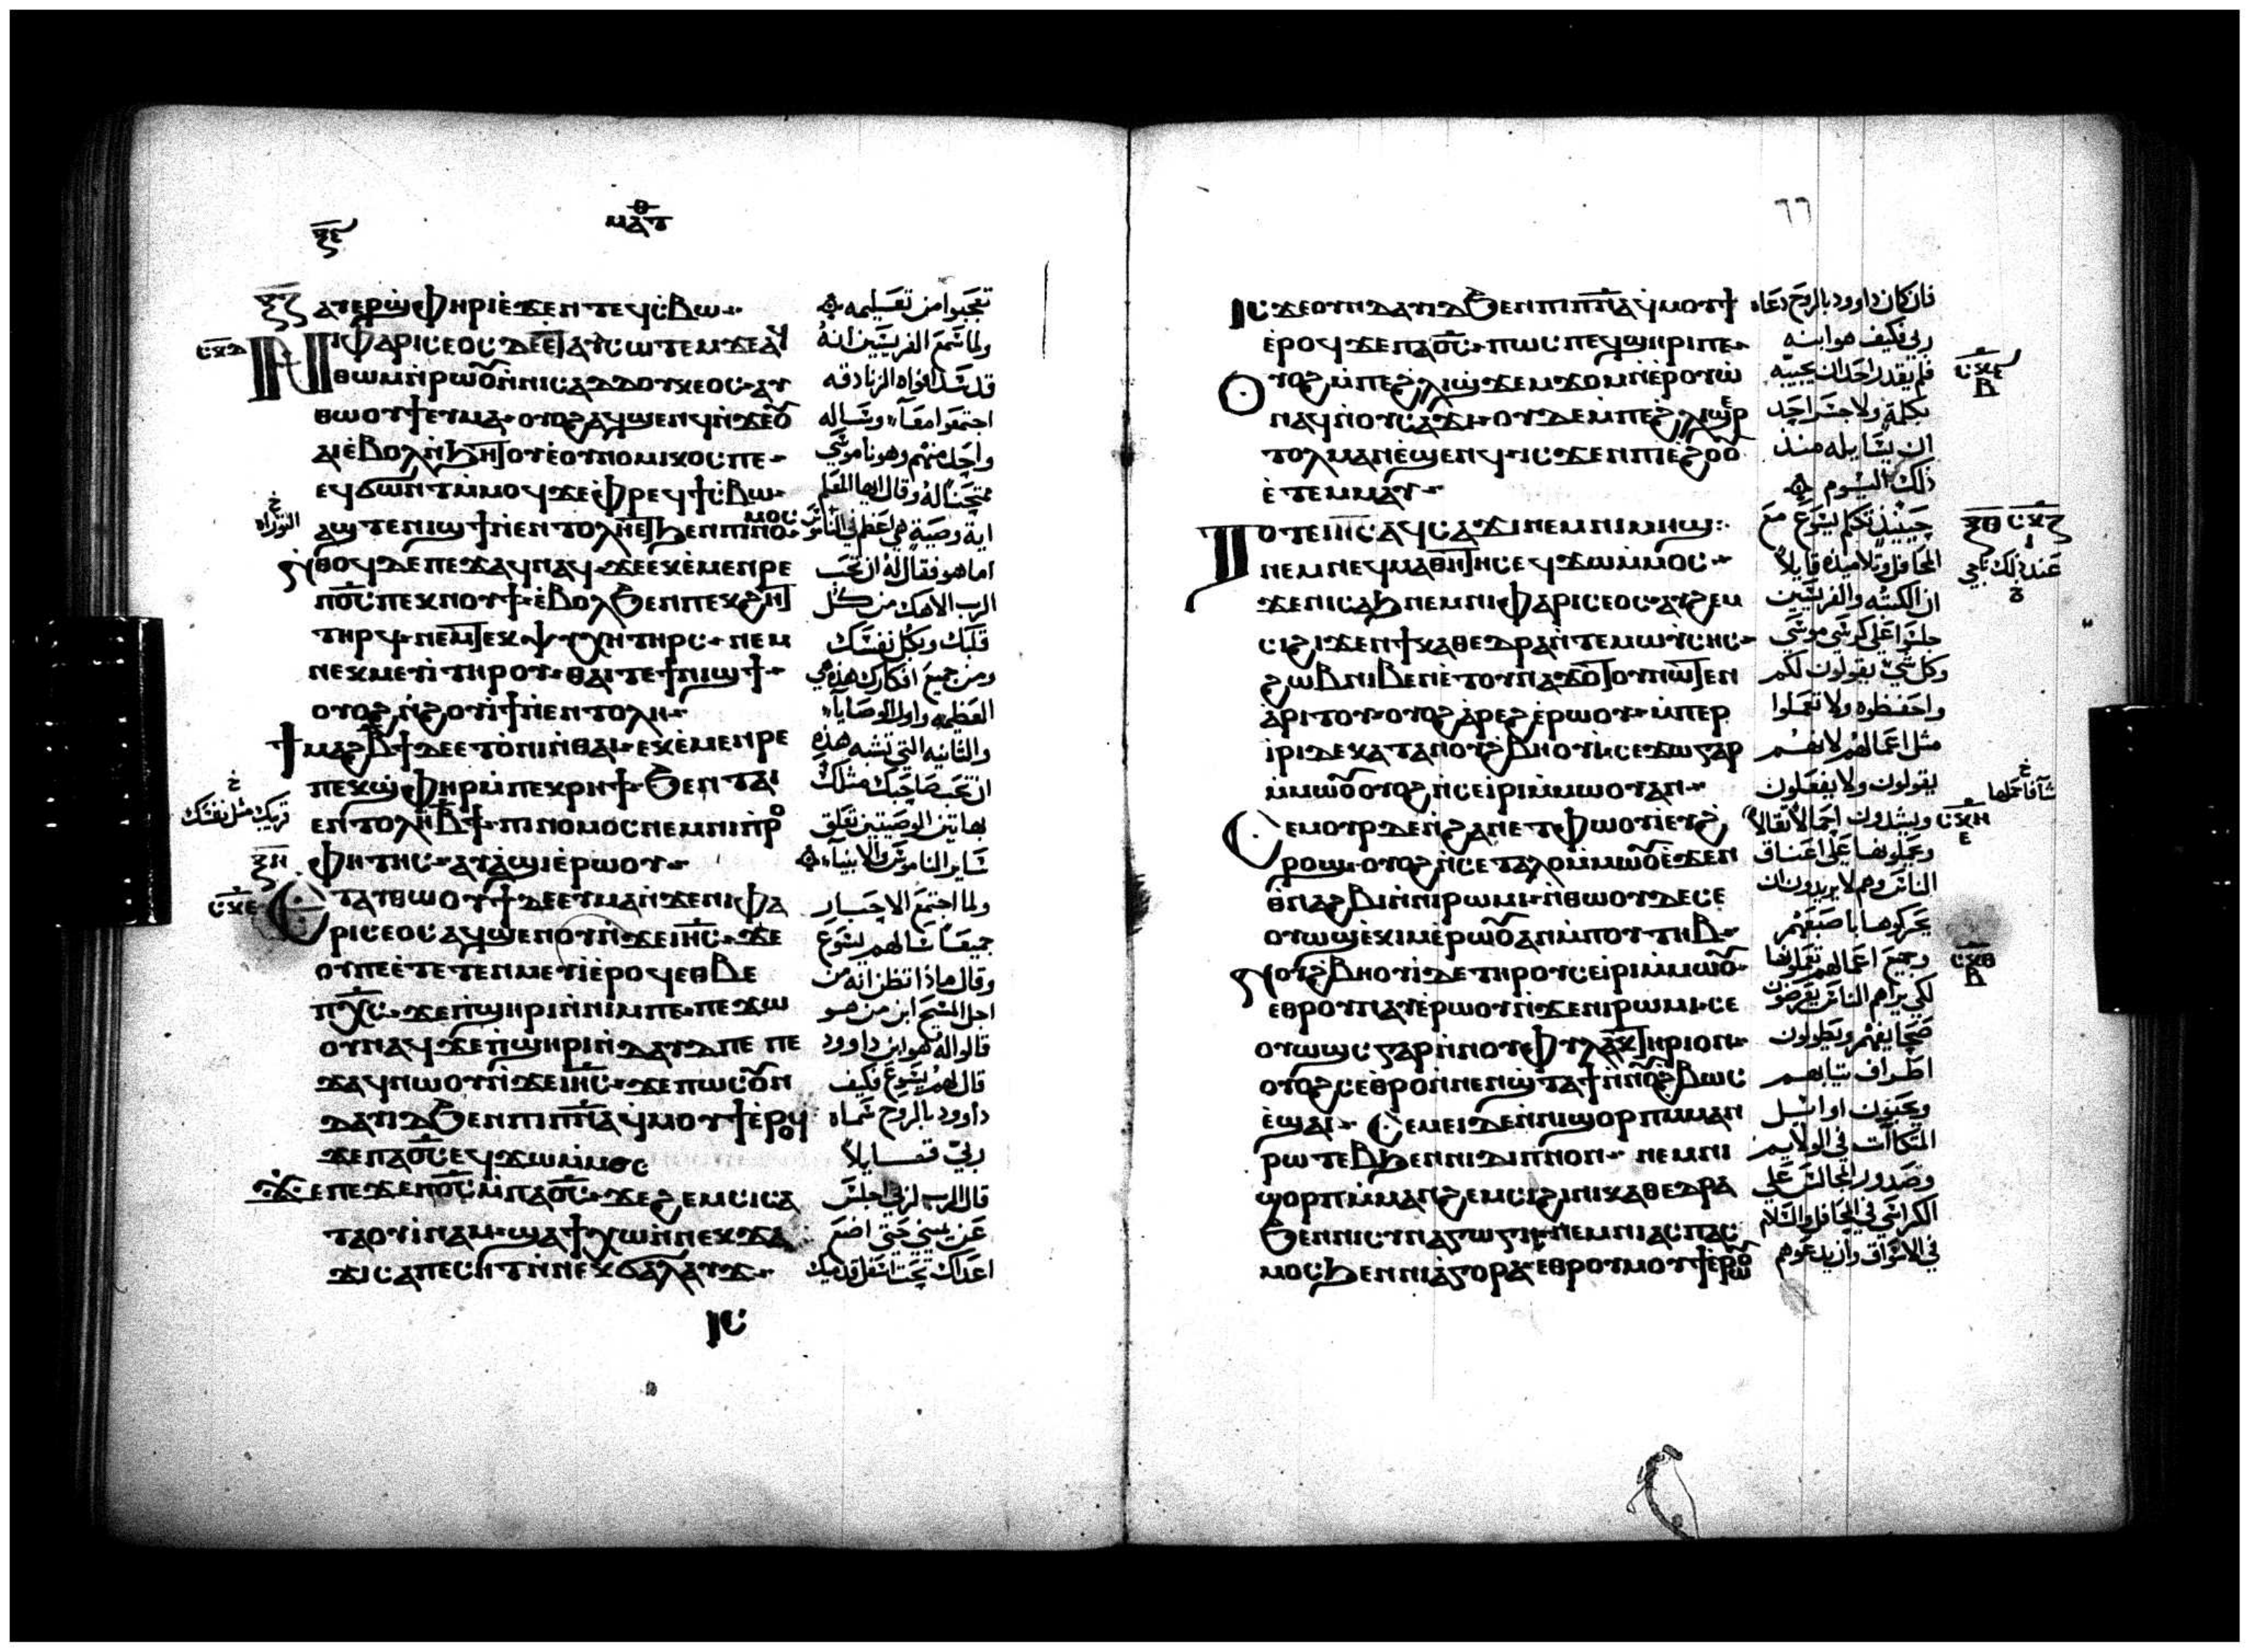 ⲝⲉ
ⲙⲁⲧⲑ
ⲝⲍ
ⲁⲩⲉⲣϣⲫⲏⲣⲓ ⲉϫⲉⲛ ⲧⲉϥⲥⲃⲱ
ⲥⲭⲇ
ⲛⲓⲫⲁⲣⲓⲥⲉⲟⲥ ⲇⲉ ⲉⲧⲁⲩⲥⲱⲧⲉⲙ ϫⲉ ⲁϥ
ⲑⲱⲙ ⲛⲣⲱⲟⲩ ⲛⲛⲓⲥⲁⲇⲇⲟⲩⲕⲉⲟⲥ ⲁⲩ
ⲑⲱⲟⲩϯ ⲉⲩⲙⲁ ⲟⲩⲟϩ ⲁϥϣⲉⲛϥ ⲛϫⲉ ⲟⲩ
ⲁⲓ ⲉⲃⲟⲗ ⲛϧⲏⲧⲟⲩ ⲉⲟⲩⲛⲟⲙⲓⲕⲟⲥ ⲡⲉ
ⲉϥϭⲱⲛⲧ ⲙⲙⲟϥ ϫⲉ ⲫⲣⲉϥϯⲥⲃⲱ
ⲁϣ ⲧⲉ ⲛⲓϣϯ ⲛⲉⲛⲧⲟⲗⲏ ⲉⲧϧⲉⲛ ⲡⲓⲛⲟⲙⲟⲥ
ⲛⲑⲟϥ ⲇⲉ ⲡⲉϫⲁϥ ⲛⲁϥ ϫⲉ ⲉⲕⲉⲙⲉⲛⲣⲉ
ⲡϭⲥ ⲡⲉⲕⲛⲟⲩϯ ⲉⲃⲟⲗ ϧⲉⲛ ⲡⲉⲕϩⲏⲧ
ⲧⲏⲣϥ ⲛⲉⲙ ⲧⲉⲕⲯⲩⲭⲏ ⲧⲏⲣⲥ ⲛⲉⲙ
ⲛⲉⲕⲙⲉⲩⲓ ⲧⲏⲣⲟⲩ ⲑⲁⲓ ⲧⲉ ϯⲛⲓϣϯ
ⲟⲩⲟϩ ⲛϩⲟⲩⲓϯ ⲛⲉⲛⲧⲟⲗⲏ
ϯⲙⲁϩⲃϯ ⲇⲉ ⲉⲧⲟⲛⲓ ⲛⲑⲁⲓ ⲉⲕⲉⲙⲉⲛⲣⲉ
ⲡⲉⲕϣⲫⲏⲣ ⲙⲡⲉⲕⲣⲏϯ ϧⲉⲛ ⲧⲁⲓ
ⲉⲛⲧⲟⲗⲏ ⲃϯ ⲡⲓⲛⲟⲙⲟⲥ ⲛⲉⲙ ⲛⲓⲡⲣⲟ
ⲝⲏ
ⲫⲏⲧⲏⲥ ⲁⲩⲁϣⲓ ⲉⲣⲱⲟⲩ
ⲥⲭⲉ
ⲉⲧⲁⲩⲑⲱⲟⲩϯ ⲇⲉ ⲉⲩⲙⲁ ⲛϫⲉ ⲛⲓⲫⲁ
ⲣⲓⲥⲉⲟⲥ ⲁϥϣⲉⲛⲟⲩ ⲛϫⲉ ⲓⲏⲥ ϫⲉ
ⲟⲩ ⲡⲉ ⲉⲧⲉⲧⲉⲛⲙⲉⲩⲓ ⲉⲣⲟϥ ⲉⲑⲃⲉ
ⲡⲭⲥ ϫⲉ ⲡϣⲏⲣⲓ ⲛⲛⲓⲙ ⲡⲉ ⲡⲉϫⲱ
ⲟⲩ ⲛⲁϥ ϫⲉ ⲡϣⲏⲣⲓ ⲛⲇⲁⲩⲇ ⲡⲉ ⲡⲉ
ϫⲁϥ ⲛⲱⲟⲩ ⲛϫⲉ ⲓⲏⲥ ϫⲉ ⲡⲱⲥ ⲟⲩⲛ
ⲇⲁⲩⲇ ϧⲉⲛ ⲡⲓⲡⲛⲁ ϥⲙⲟⲩϯ ⲉⲣⲟϥ
ϫⲉ ⲡⲁϭⲥ ⲉϥϫⲱ ⲙⲙⲟⲥ
ϫⲉ ⲡⲉϫⲉ ⲡϭⲥ ⲙⲡⲁϭⲥ ϫⲉ ϩⲉⲙⲥⲓ ⲥⲁ
ⲧⲁⲟⲩⲓⲛⲁⲙ ϣⲁϯⲭⲱ ⲛⲛⲉⲕϫⲁ
ϫⲓ ⲥⲁⲡⲉⲥⲏⲧ ⲛⲛⲉⲕϭⲁⲗⲁⲩϫ
ⲓⲥ
تعجبوا من تعليمه
ولما سمع الفريسيين انه
قد سد افواه الزنادقه
اجتمعوا معاً وساله
واحد منهم وهو ناموسي
ممتحناً له وقال ايها المعلم
اية وصية هي اعظم في الناموس
خ التوراه
اما هو فقال له ان تحب
الرب الاهك من كل
قلبك وبكل نفسك
ومن جميع افكارك هذه هي
العظيمه واول الوصايا
والثانيه التي تشبه هذه
ان تحب صاحبك مثلك
خ قريبك مثل نفسك
بهاتين الوصيتين تعلق
ساير الناموس والانبياء
ولما اجتمع الاحبار
جميعاً سالهم يسوع
وقال ماذا تظن انه من
اجل المسيح ابن من هو
قالوا له هو ابن داوود
قال لهم يسوع فكيف
داوود بالروح سماه
ربي قايلاً
قال الرب لربي اجلس
عن يميني حتى اضع
اعداك تحت اسفل قدميك
٦٦
ⲓⲥϫⲉ ⲟⲩⲛ ⲇⲁⲩⲇ ϧⲉⲛ ⲡⲓⲡⲛⲁ ϥⲙⲟⲩϯ
ⲉⲣⲟϥ ϫⲉ ⲡⲁϭⲥ ⲡⲱⲥ ⲡⲉϥϣⲏⲣⲓ ⲡⲉ
ⲟⲩⲟϩ ⲙⲡⲉϩⲗⲓ ϣϫⲉⲙϫⲟⲙ ⲛⲉⲣⲟⲩⲱ
ⲛⲁϥ ⲛⲟⲩⲥⲁϫⲓ ⲟⲩⲇⲉ ⲙⲡⲉϩⲗⲓ ϣⲉⲣ
ⲧⲟⲗⲙⲁⲛ ⲉϣⲉⲛϥ ⲓⲥϫⲉⲛ ⲡⲓⲉϩⲟⲟⲩ
ⲉⲧⲉⲙⲙⲁⲩ
ⲧⲟⲧⲉ ⲓⲏⲥ ⲁϥⲥⲁϫⲓ ⲛⲉⲙ ⲛⲓⲙⲏϣ
ⲛⲉⲙ ⲛⲉϥⲙⲁⲑⲏⲧⲏⲥ ⲉϥϫⲱ ⲙⲙⲟⲥ
ϫⲉ ⲛⲓⲥⲁϧ ⲛⲉⲙ ⲛⲓⲫⲁⲣⲓⲥⲉⲟⲥ ⲁⲩϩⲉⲙ
ⲥⲓ ϩⲓϫⲉⲛ ϯⲕⲁⲑⲉⲇⲣⲁ ⲛⲧⲉ ⲙⲱⲩⲥⲏⲥ
ϩⲱⲃ ⲛⲓⲃⲉⲛ ⲉⲧⲟⲩⲛⲁϫⲟⲧⲟⲩ ⲛⲱⲧⲉⲛ
ⲁⲣⲓⲧⲟⲩ ⲟⲩⲟϩ ⲁⲣⲉϩ ⲉⲣⲱⲟⲩ ⲙⲡⲉⲣ
ⲓⲣⲓ ⲇⲉ ⲕⲁⲧⲁ ⲛⲟⲩϩⲃⲏⲟⲩⲓ ⲥⲉϫⲱ ⲅⲁⲣ
ⲙⲙⲱⲟⲩ ⲟⲩⲟϩ ⲛⲥⲉⲓⲣⲓ ⲙⲙⲱⲟⲩ ⲁⲛ
ⲥⲉⲙⲟⲩⲣ ⲇⲉ ⲛϩⲁⲛⲉⲧⲫⲱⲟⲩⲓ ⲉⲩϩ
ⲣⲟϣ ⲟⲩⲟϩ ⲛⲥⲉⲧⲁⲗⲟ ⲙⲙⲱⲟⲩ ⲉϫⲉⲛ
ⲑⲛⲁϩⲃⲓ ⲛⲛⲓⲣⲱⲙⲓ ⲛⲑⲱⲟⲩ ⲇⲉ ⲥⲉ
ⲟⲩⲱϣ ⲉⲕⲓⲙ ⲉⲣⲱⲟⲩ ⲁⲛ ⲙⲡⲟⲩⲧⲏⲃ
ⲛⲟⲩϩⲃⲏⲟⲩⲓ ⲇⲉ ⲧⲏⲣⲟⲩ ⲥⲉⲓⲣⲓ ⲙⲙⲱⲟⲩ
ⲉⲑⲣⲟⲩⲛⲁⲩ ⲉⲣⲱⲟⲩ ⲛϫⲉ ⲛⲓⲣⲱⲙⲓ ⲥⲉ
ⲟⲩⲱϣⲥ ⲅⲁⲣ ⲛⲛⲟⲩⲫⲩⲗⲁⲕⲧⲏⲣⲓⲟⲛ
ⲟⲩⲟϩ ⲥⲉⲑⲣⲟ ⲛⲛⲉⲛϣⲧⲁϯ ⲛⲛⲟⲩϩⲃⲱⲥ
ⲉϣⲁⲓ ⲥⲉⲙⲉⲓ ⲇⲉ ⲛⲛⲓϣⲟⲣⲡ ⲙⲙⲁⲛ
ⲣⲱⲧⲉⲃ ϧⲉⲛ ⲛⲓⲇⲓⲡⲛⲟⲛ ⲛⲉⲙ ⲛⲓ
ϣⲟⲣⲡ ⲙⲙⲁⲛϩⲉⲙⲥⲓ ϩⲓ ⲛⲓⲕⲁⲑⲉⲇⲣⲁ
ϧⲉⲛ ⲛⲓⲥⲩⲛⲁⲅⲱⲅⲏ ⲛⲉⲙ ⲛⲓⲁⲥⲡⲁⲥ
ⲙⲟⲥ ϧⲉⲛ ⲛⲓⲁⲅⲟⲣⲁ ⲉⲑⲣⲟⲩⲙⲟⲩϯ ⲉⲣⲱⲟⲩ
فان كان داوود بالروح دعاه
ربي فكيف هو ابنه
فلم يقدر احد ان يجيبه
بكلمة ولا جسر احد
ان يسايله منذ
ذلك اليوم
حينيذ تكلم يسوع مع
المحافل وتلاميذه قايلاً
ان الكتبه والفريسيين
جلسوا على كرسي موسى
وكل شي يقولون لكم
واحفظوه ولا تعملوا
مثل اعمالهم لانهم
يقولون ولا يفعلون
ويشدون احمالاً ثقالاً
ويحملونها على اعناق
الناس وهم لا يريدون ان
يحركوها باصبعهم
وجميع اعمالهم يعملونها
لكي يراهم الناس يعرضون
ويطولون
اطراف ثيابهم
ويحبون اوايل
المتكاات في الولايم
وصدور المجالس على
الكراسي في المحافل والسلام
في الاسواق وان يدعوهم
ⲥⲭⲉ
ⲃ
ⲝⲑ ⲥⲭⲍ
ⲥⲭⲏ
ⲉ
ⲥⲭⲑ
ⲃ